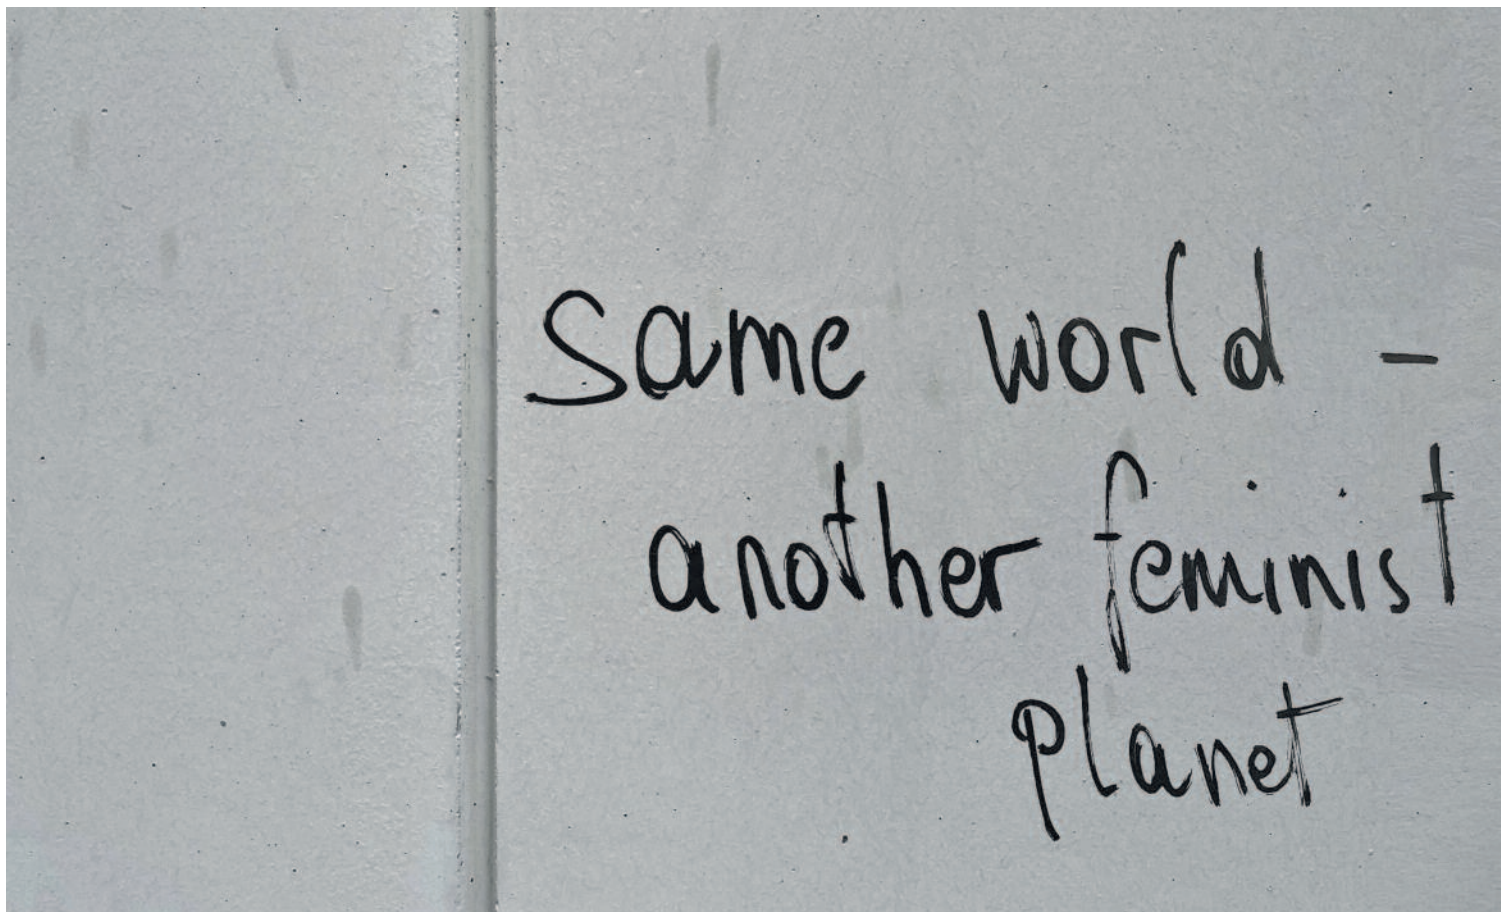 same world -
another feminist
planet